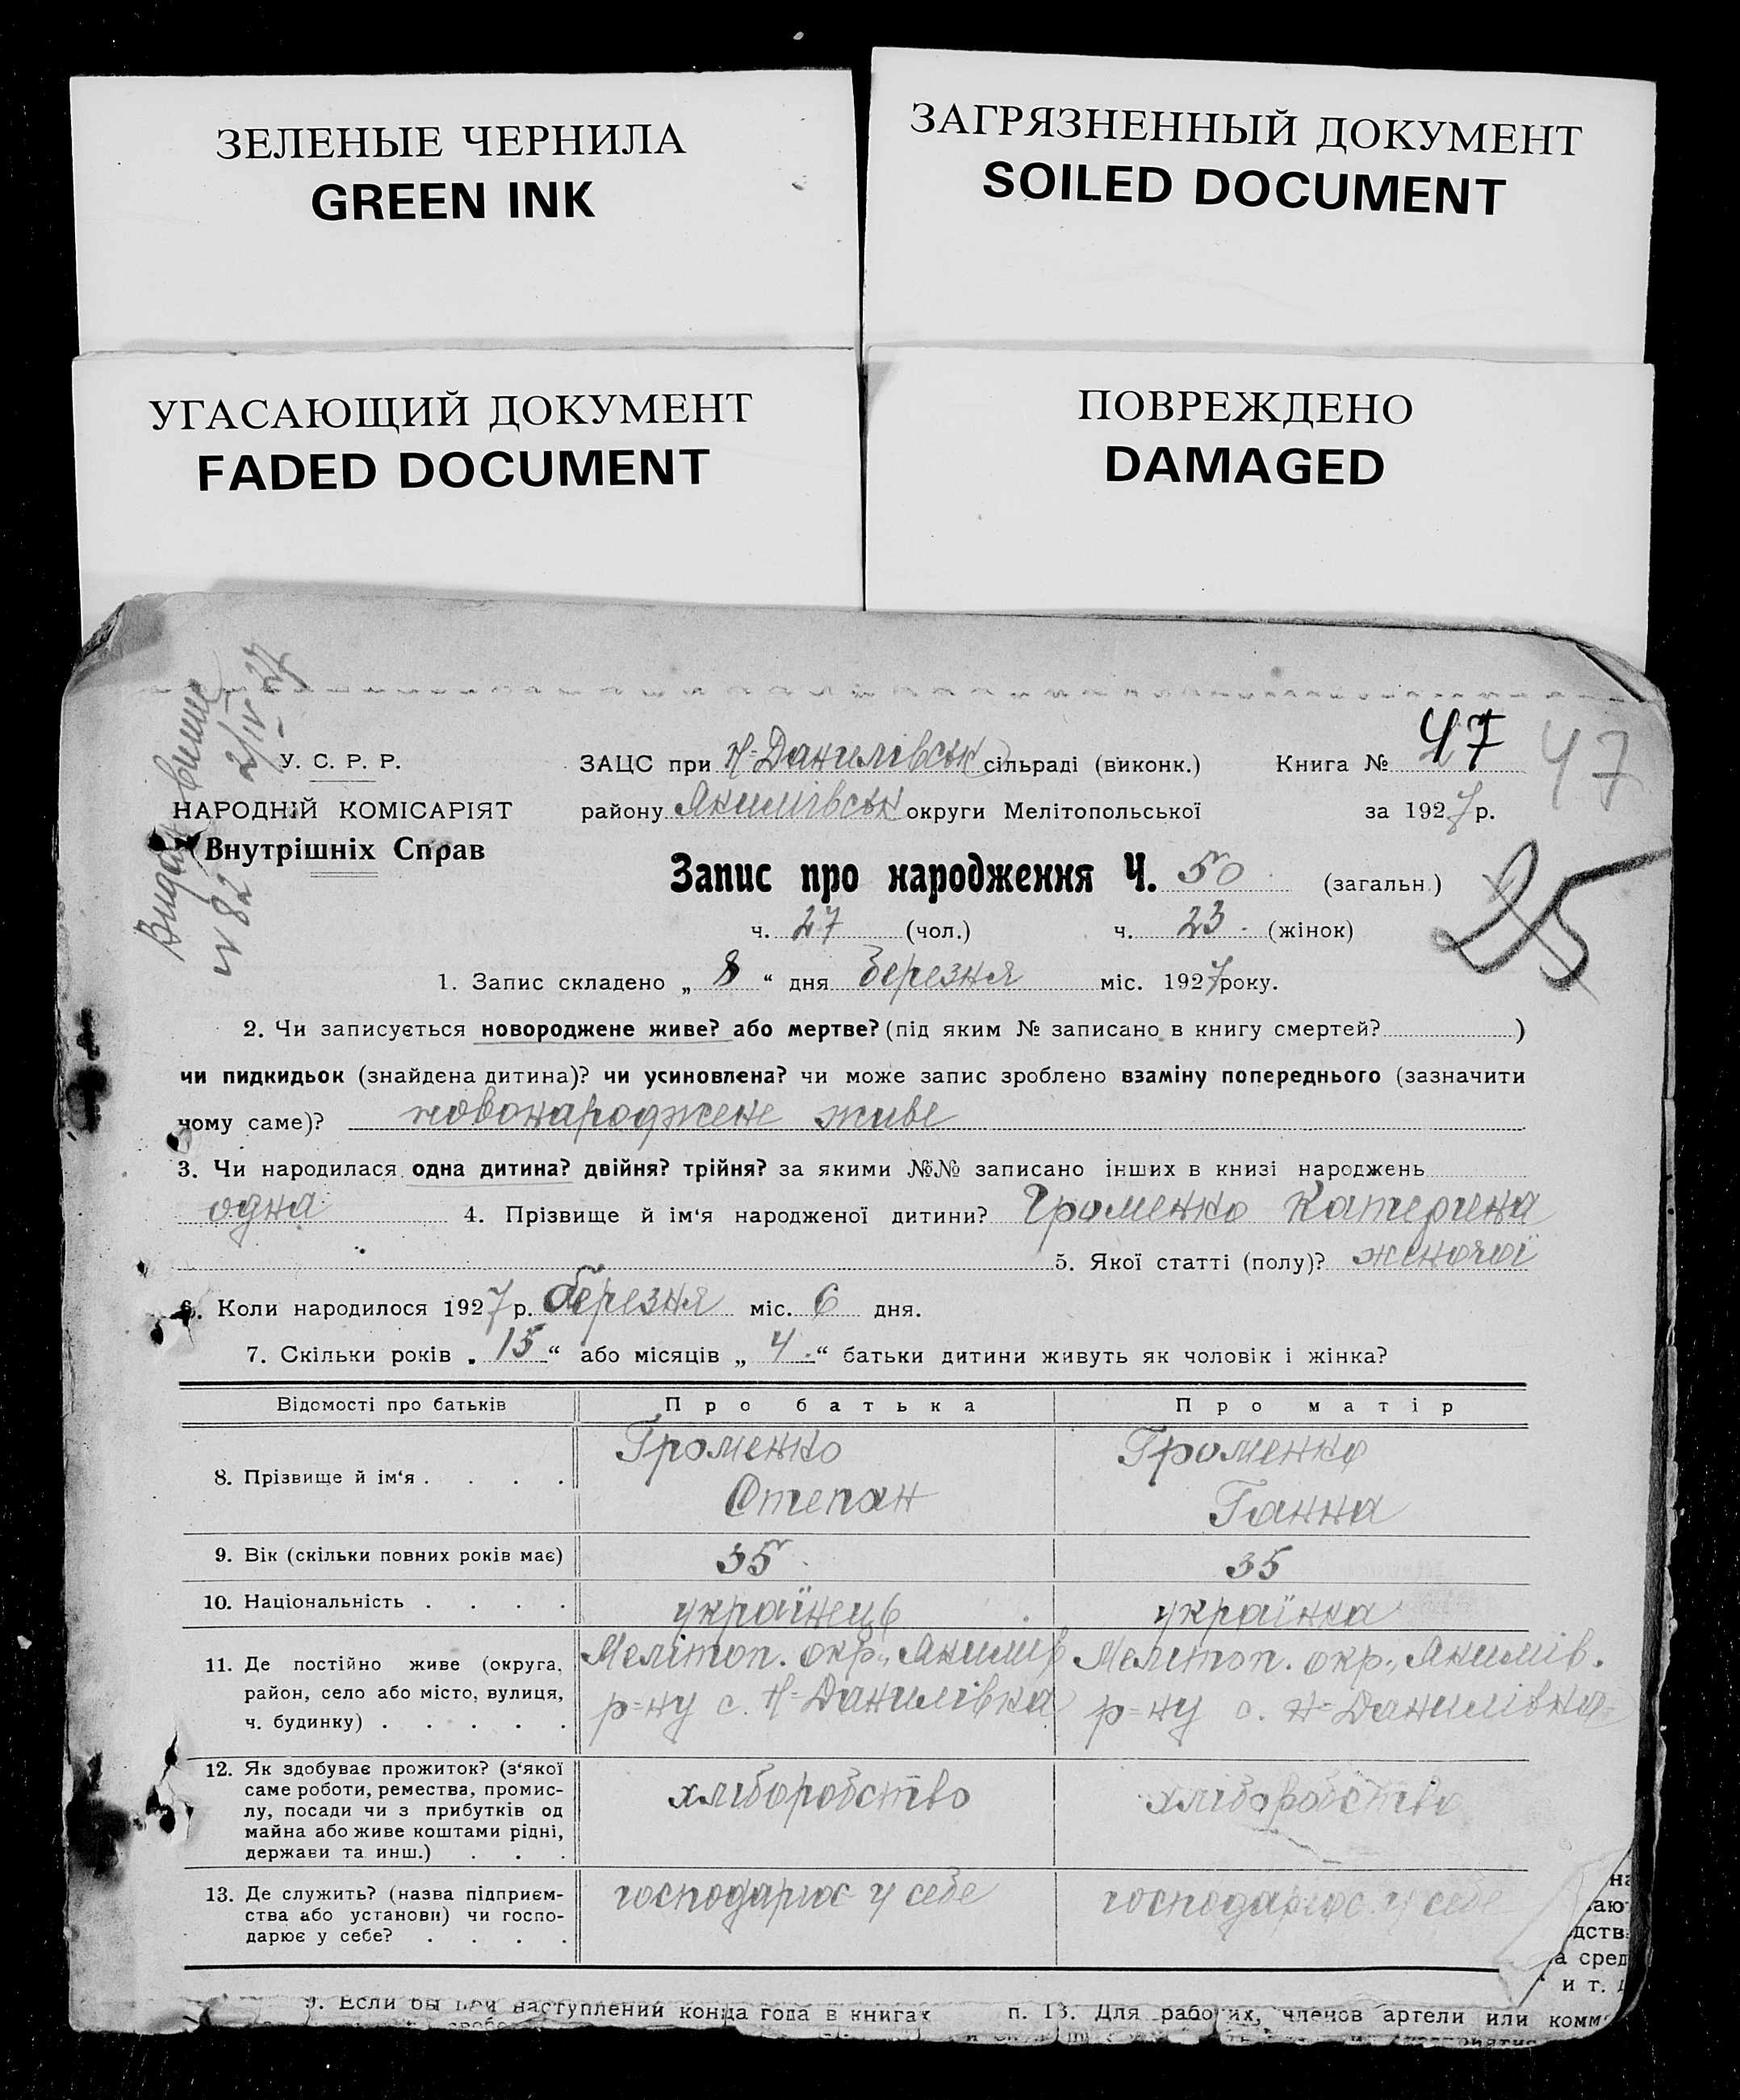 ЗЕЛЕНЫЕ ЧЕРНИЛА
GREEN INK
ЗАГРЯЗНЕННЫЙ ДОКУМЕНТ
SOILED DOCUMENT
УГАСАЮЩИЙ ДОКУМЕНТ
FADED DOCUMENT
ПОВРЕЖДЕНО
DAMAGED
2/IV-27
№ 82
У. С. Р. Р.
НАРОДНІЙ КОМІСАРІЯТ
Внутрішніх Справ
ЗАЦС при Н-Данилівськ сільраді (виконк.) Книга № 47 47
району Якимівськ округи Мелітопольської за 1927 р.
Запис про народження Ч. 50 (загальн.)
25
ч. 27 (чол.) ч. 23 (жінок)
1. Запис складено „ 8 “ дня березня міс. 1927 року.
2. Чи записується новороджене живе? або мертве? (під яким № записано в книгу смертей? )
чи пидкидьок (знайдена дитина)? чи усиновлена? чи може запис зроблено взаміну попереднього (зазначити
чому саме)? новонароджене живе
3. Чи народилася одна дитина? двійня? трійня? за якими №№ записано інших в книзі народжень
одна 4. Прізвище й ім‘я народженої дитини? Громенко Катерина
5. Якої статті (полу)? жіночої
6. Коли народилося 1927 р. березня міс. 6 дня.
7. Скільки років „ 15 “ або місяців „ 4 “ батьки дитини живуть як чоловік і жінка?
Відомості про батьків Про батька Про матір
8. Прізвище й ім‘я . . . . Громенко Степан Громенко Ганна
9. Вік (скільки повних років має) 35 35
10. Національність . . . . українець українка
11. Де постійно живе (округа, Мелітоп. окр., Якимів Мелітоп. окр., Якимів.
район, село або місто, вулиця, р=ну с. Н-Данилівка р=ну с. Н-Данилівка
ч. будинку) . . . . .
12. Як здобуває прожиток? (з‘якої
саме роботи, ремества, промис- хліборобство хліборобство
лу, посади чи з прибутків од
майна або живе коштами рідні,
держави та инш.) . . .
13. Де служить? (назва підприєм- господарює у себе господарює у себе
ства або установи) чи госпо-
дарює у себе? . . . .
дств
а сред
и т.
9. Если бы при наступлений конца года в книгах п. 13. Для рабочих, членов артели или комм